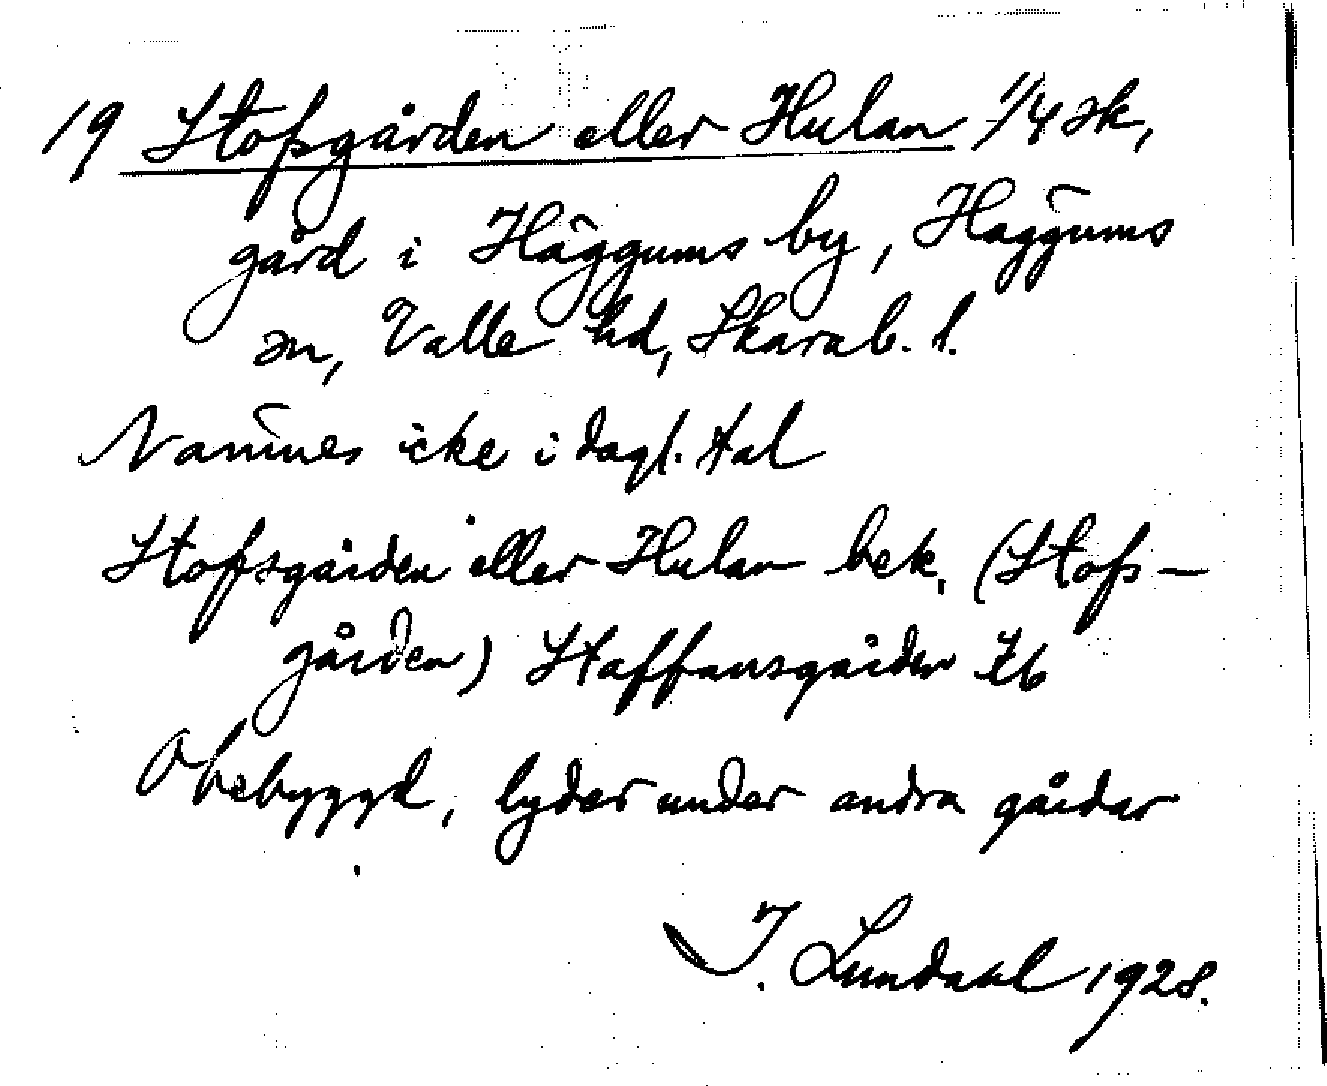 19 Stofsgården eller Hulan 1/4 sk,
gård i Häggums by, Häggums
sn, Valle hd, Skarab. l.
Namnes icke i dagl. tal
Stofsgården eller Hulan bek. (Stofs-
gården) Staffansgården Jb
Obebyggd, lyder under andra gårdar
I. Lundahl 1928.